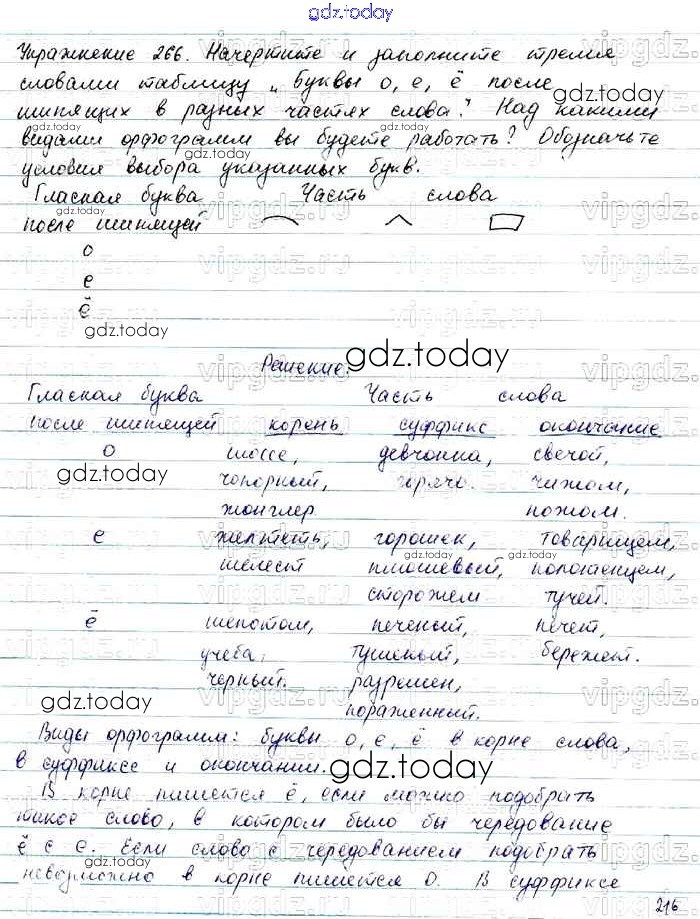 gdz.today
Упражнение 266. Начертите и заполните тремя
словами таблицу „Буквы о, е, ё после
шипящих в разных частях слова." Над какими
видами орфограмм вы будете работать? Обозначьте
условия выбора указанных букв.
Гласная буква Часть слова
после шипящей
о
е
ё
gdz.today
Решение: gdz.today
Гласная буква Часть слова
после шипящей корень суффикс окончание
О шоссе, девчонка, свечой,
gdz.today чопорный, горячо. чижом,
жонглер ножом.
е желтеть, горошек, товарищем,
шелест плюшевый, полотенцем,
сторожем тучей.
ё шепотом, печеный, печет,
учеба, тушеный, бережет.
черный. разрешен,
gdz.today пораженный.
Виды орфограмм: буквы о, е, ё в корне слова,
в суффиксе и окончании. gdz.today
В корне пишется ё, если можно подобрать
такое слово, в котором было бы чередование
ё с е. Если слово с чередованием подобрать
невозможно в корне пишется О. В суффиксе
216